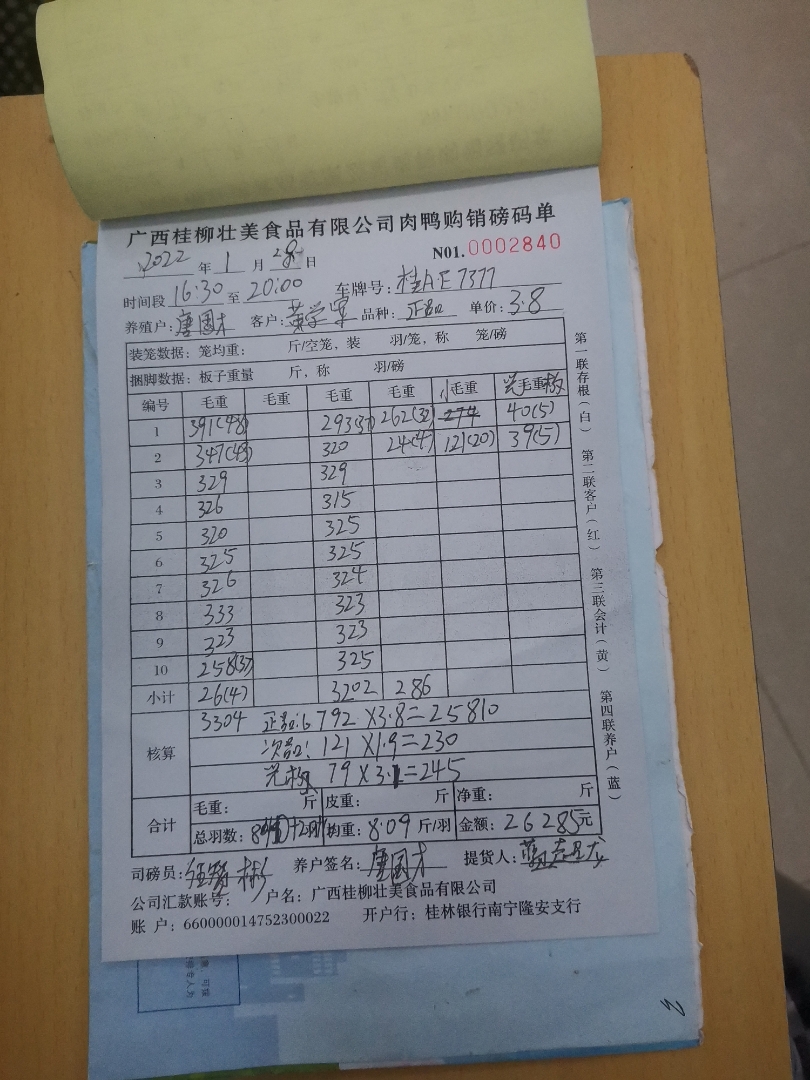 广西桂柳壮美食品有限公司肉鸭购销磅码单
2022 年 1 月 28 日 N01.0002840
时间段 16:30 至 20:00 车牌号: 桂A·E7377
养殖户: 唐国才 客户: 黄学军 品种: 正品 单价: 3.8
装笼数据: 笼均重: 斤/空笼, 装 羽/笼, 称 笼/磅
捆脚数据: 板子重量 斤, 称 羽/磅
编号 毛重 毛重 毛重 毛重 小毛重 光毛重板
1 391(48) 293(37) 262(32) 274 40(5)
2 347(43) 320 24(4) 121(20) 39(5)
3 329 329
4 326 315
5 320 325
6 325 325
7 326 324
8 333 323
9 323 323
10 258(37) 325
小计 26(4) 3202 286
核算 3304 正品: 6792×3.8=25810
次品: 121×1.9=230
光板 79×3.1=245
合计 毛重: 斤 皮重: 斤 净重: 斤
总羽数: 均重: 8.09 斤/羽 金额: 26285元
司磅员: 养户签名: 唐国才 提货人:
公司汇款账号: 户名: 广西桂柳壮美食品有限公司
账 户: 660000014752300022 开户行: 桂林银行南宁隆安支行
第一联存根(白) 第二联客户(红) 第三联会计(黄) 第四联养户(蓝)